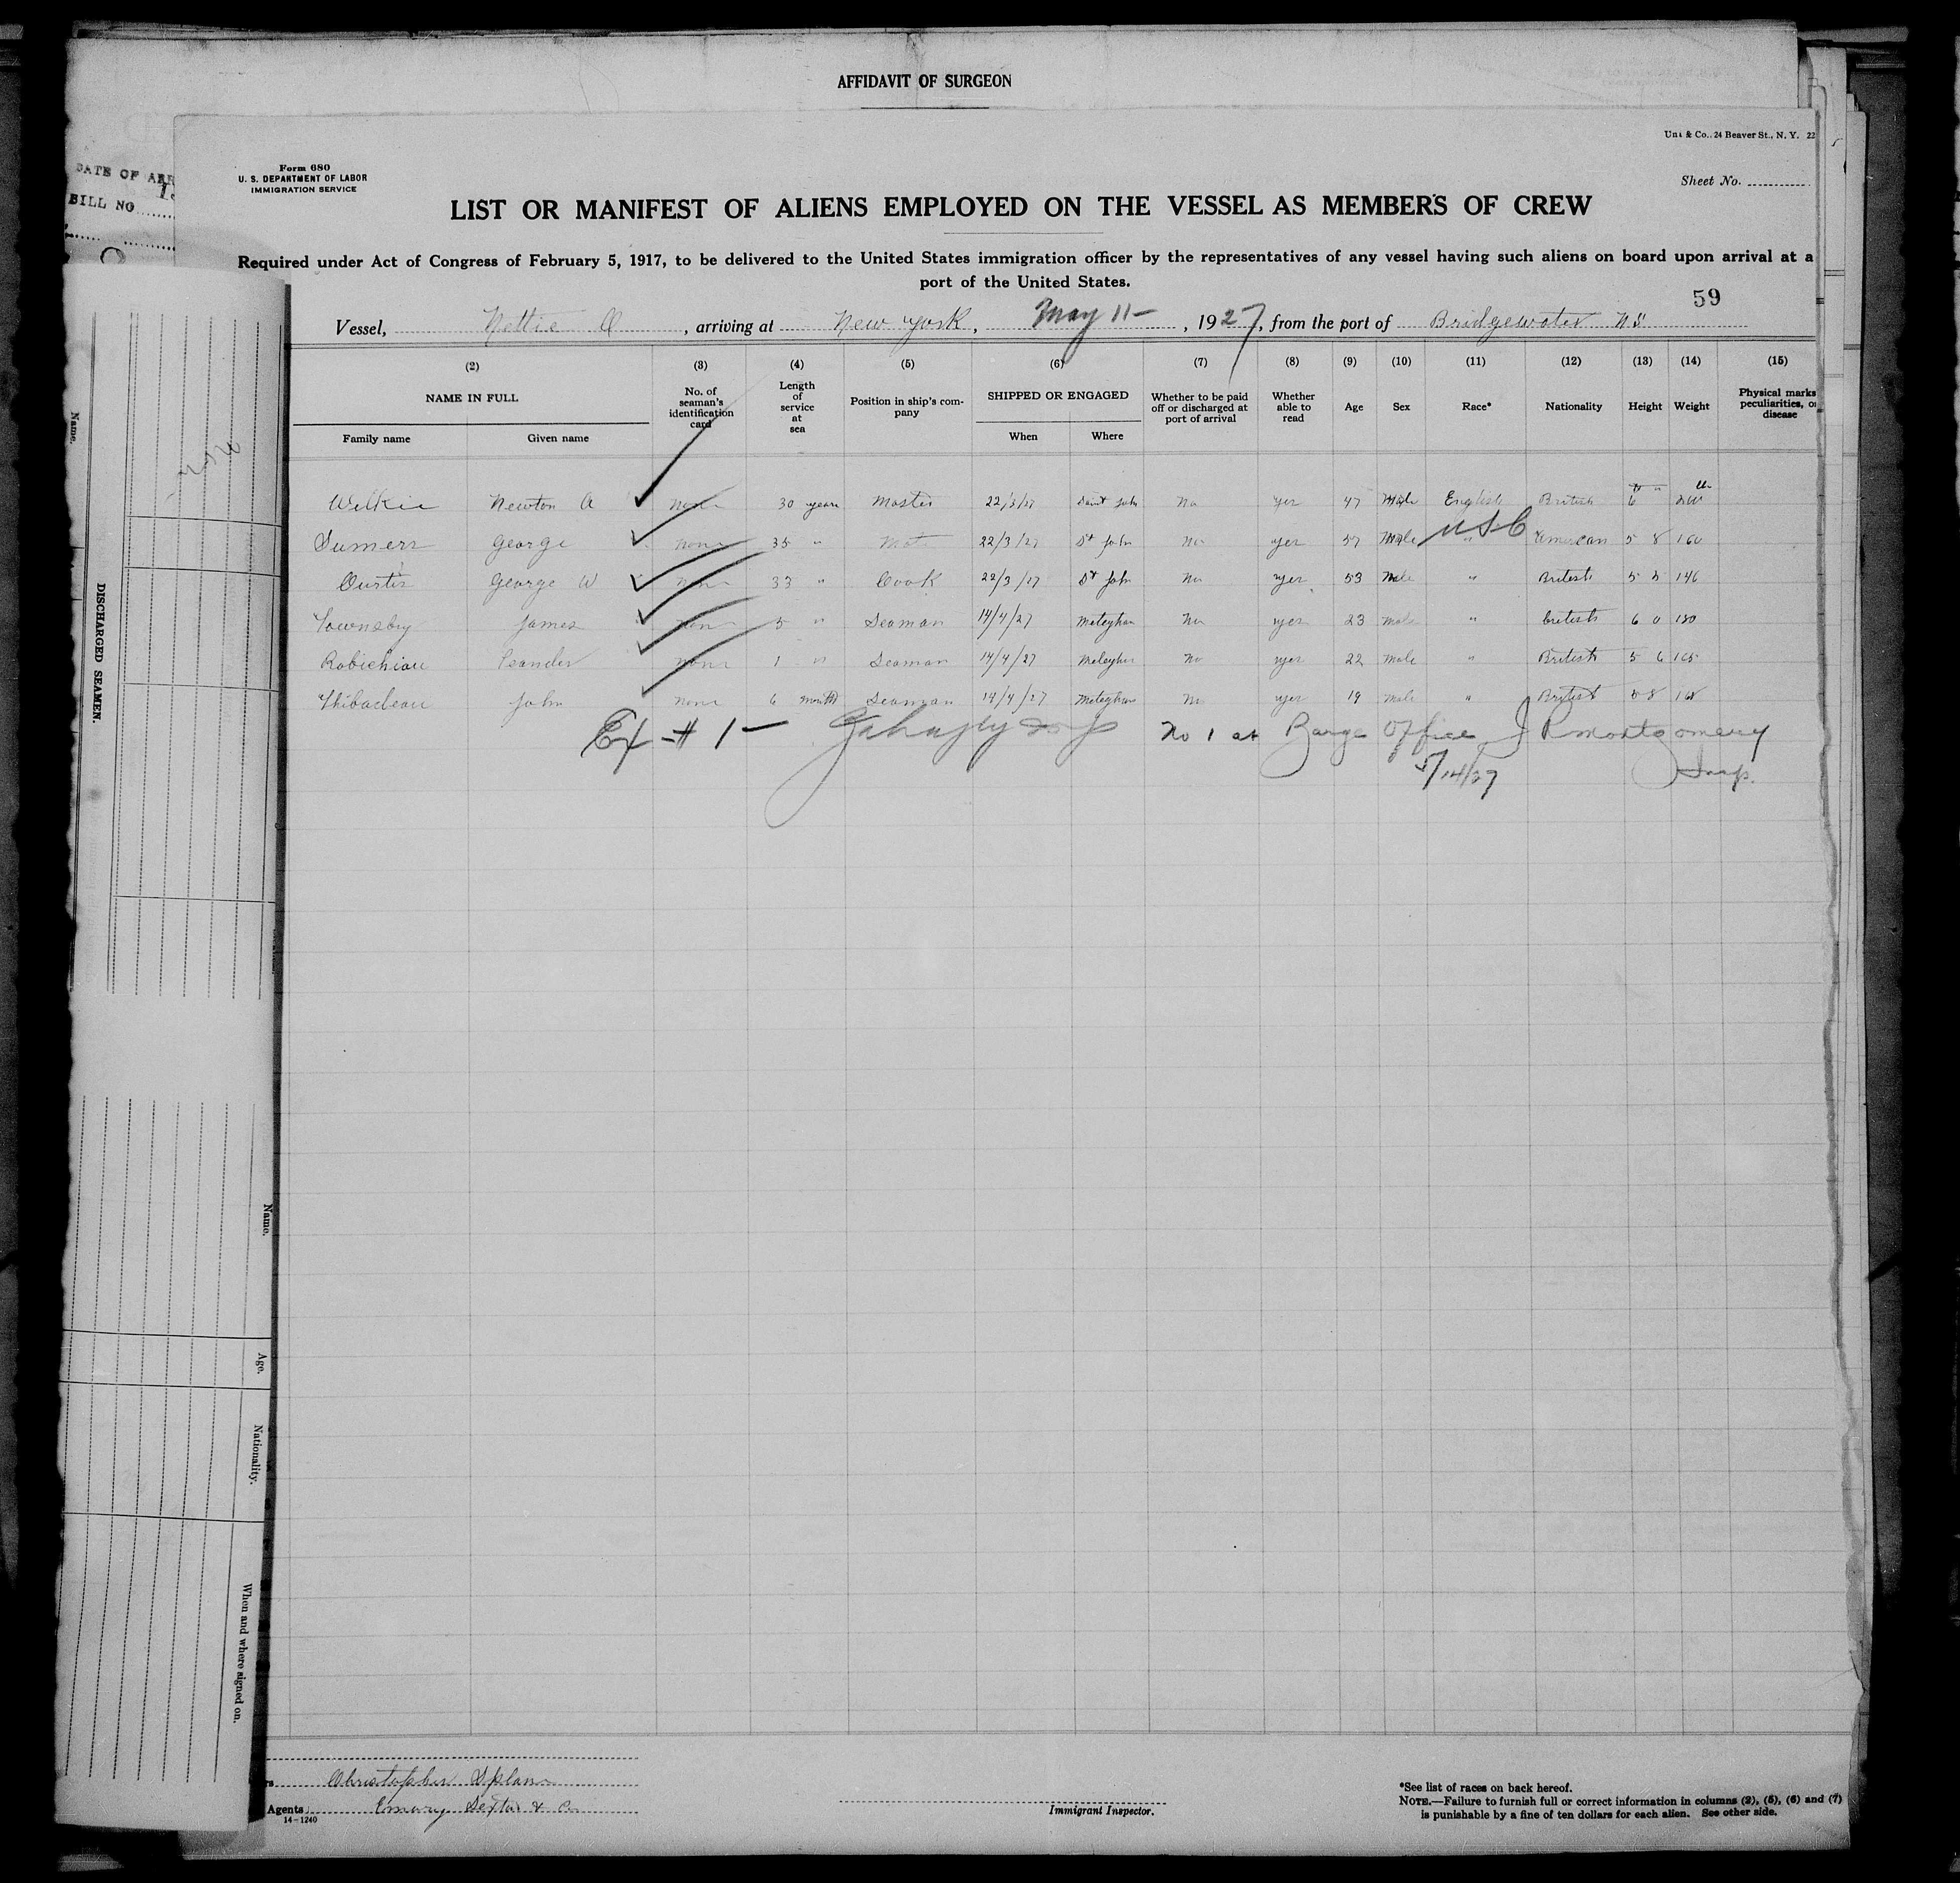 AFFIDAVIT OF SURGEON
Unz & Co., 24 Beaver St., N. Y. 22
DATE OF ARR
BILL NO
Form 680
U. S. DEPARTMENT OF LABOR
IMMIGRATION SERVICE
Sheet No.
LIST OR MANIFEST OF ALIENS EMPLOYED ON THE VESSEL AS MEMBERS OF CREW
Required under Act of Congress of February 5, 1917, to be delivered to the United States immigration officer by the representatives of any vessel having such aliens on board upon arrival at a
port of the United States.
59
Vessel, Nettie C, arriving at New York, May 11-, 1927, from the port of Bridgewater NS
(2) (3) (4) (5) (6) (7) (8) (9) (10) (11) (12) (13) (14) (15)
NAME IN FULL No. of seaman's identification card Length of service at sea Position in ship's company SHIPPED OR ENGAGED Whether to be paid off or discharged at port of arrival Whether able to read Age Sex Race* Nationality Height Weight Physical marks peculiarities, or disease
Family name Given name When Where
Welkie Newton A none 30 years Master 22/3/27 Saint John No yes 47 Male English British 6 200
Sumers George none 35 " Mate 22/3/27 St John No yes 57 Male " USC American 5 8 160
Curtis George W none 33 " Cook 22/3/27 St John No yes 53 Male " British 5 5 146
Townsby James none 5 " Seaman 14/4/27 Meteghan No yes 23 male " british 6 0 180
Robichiau Leander none 1 " Seaman 14/4/27 Meteghan No yes 22 male " British 5 6 165
Thibadeau John none 6 month Seaman 14/4/27 Meteghan No yes 19 male " British 5 8 168
Ex # 1- No 1 at Barge Office J R Montgomery
5/14/27 Insp.
Name.
DISCHARGED SEAMEN.
Name.
Age.
Nationality.
When and where signed on.
Christopher Splane
Agents, Emery Sexton & Co
14-1240
Immigrant Inspector.
*See list of races on back hereof.
NOTE.—Failure to furnish full or correct information in columns (2), (5), (6) and (7)
is punishable by a fine of ten dollars for each alien. See other side.